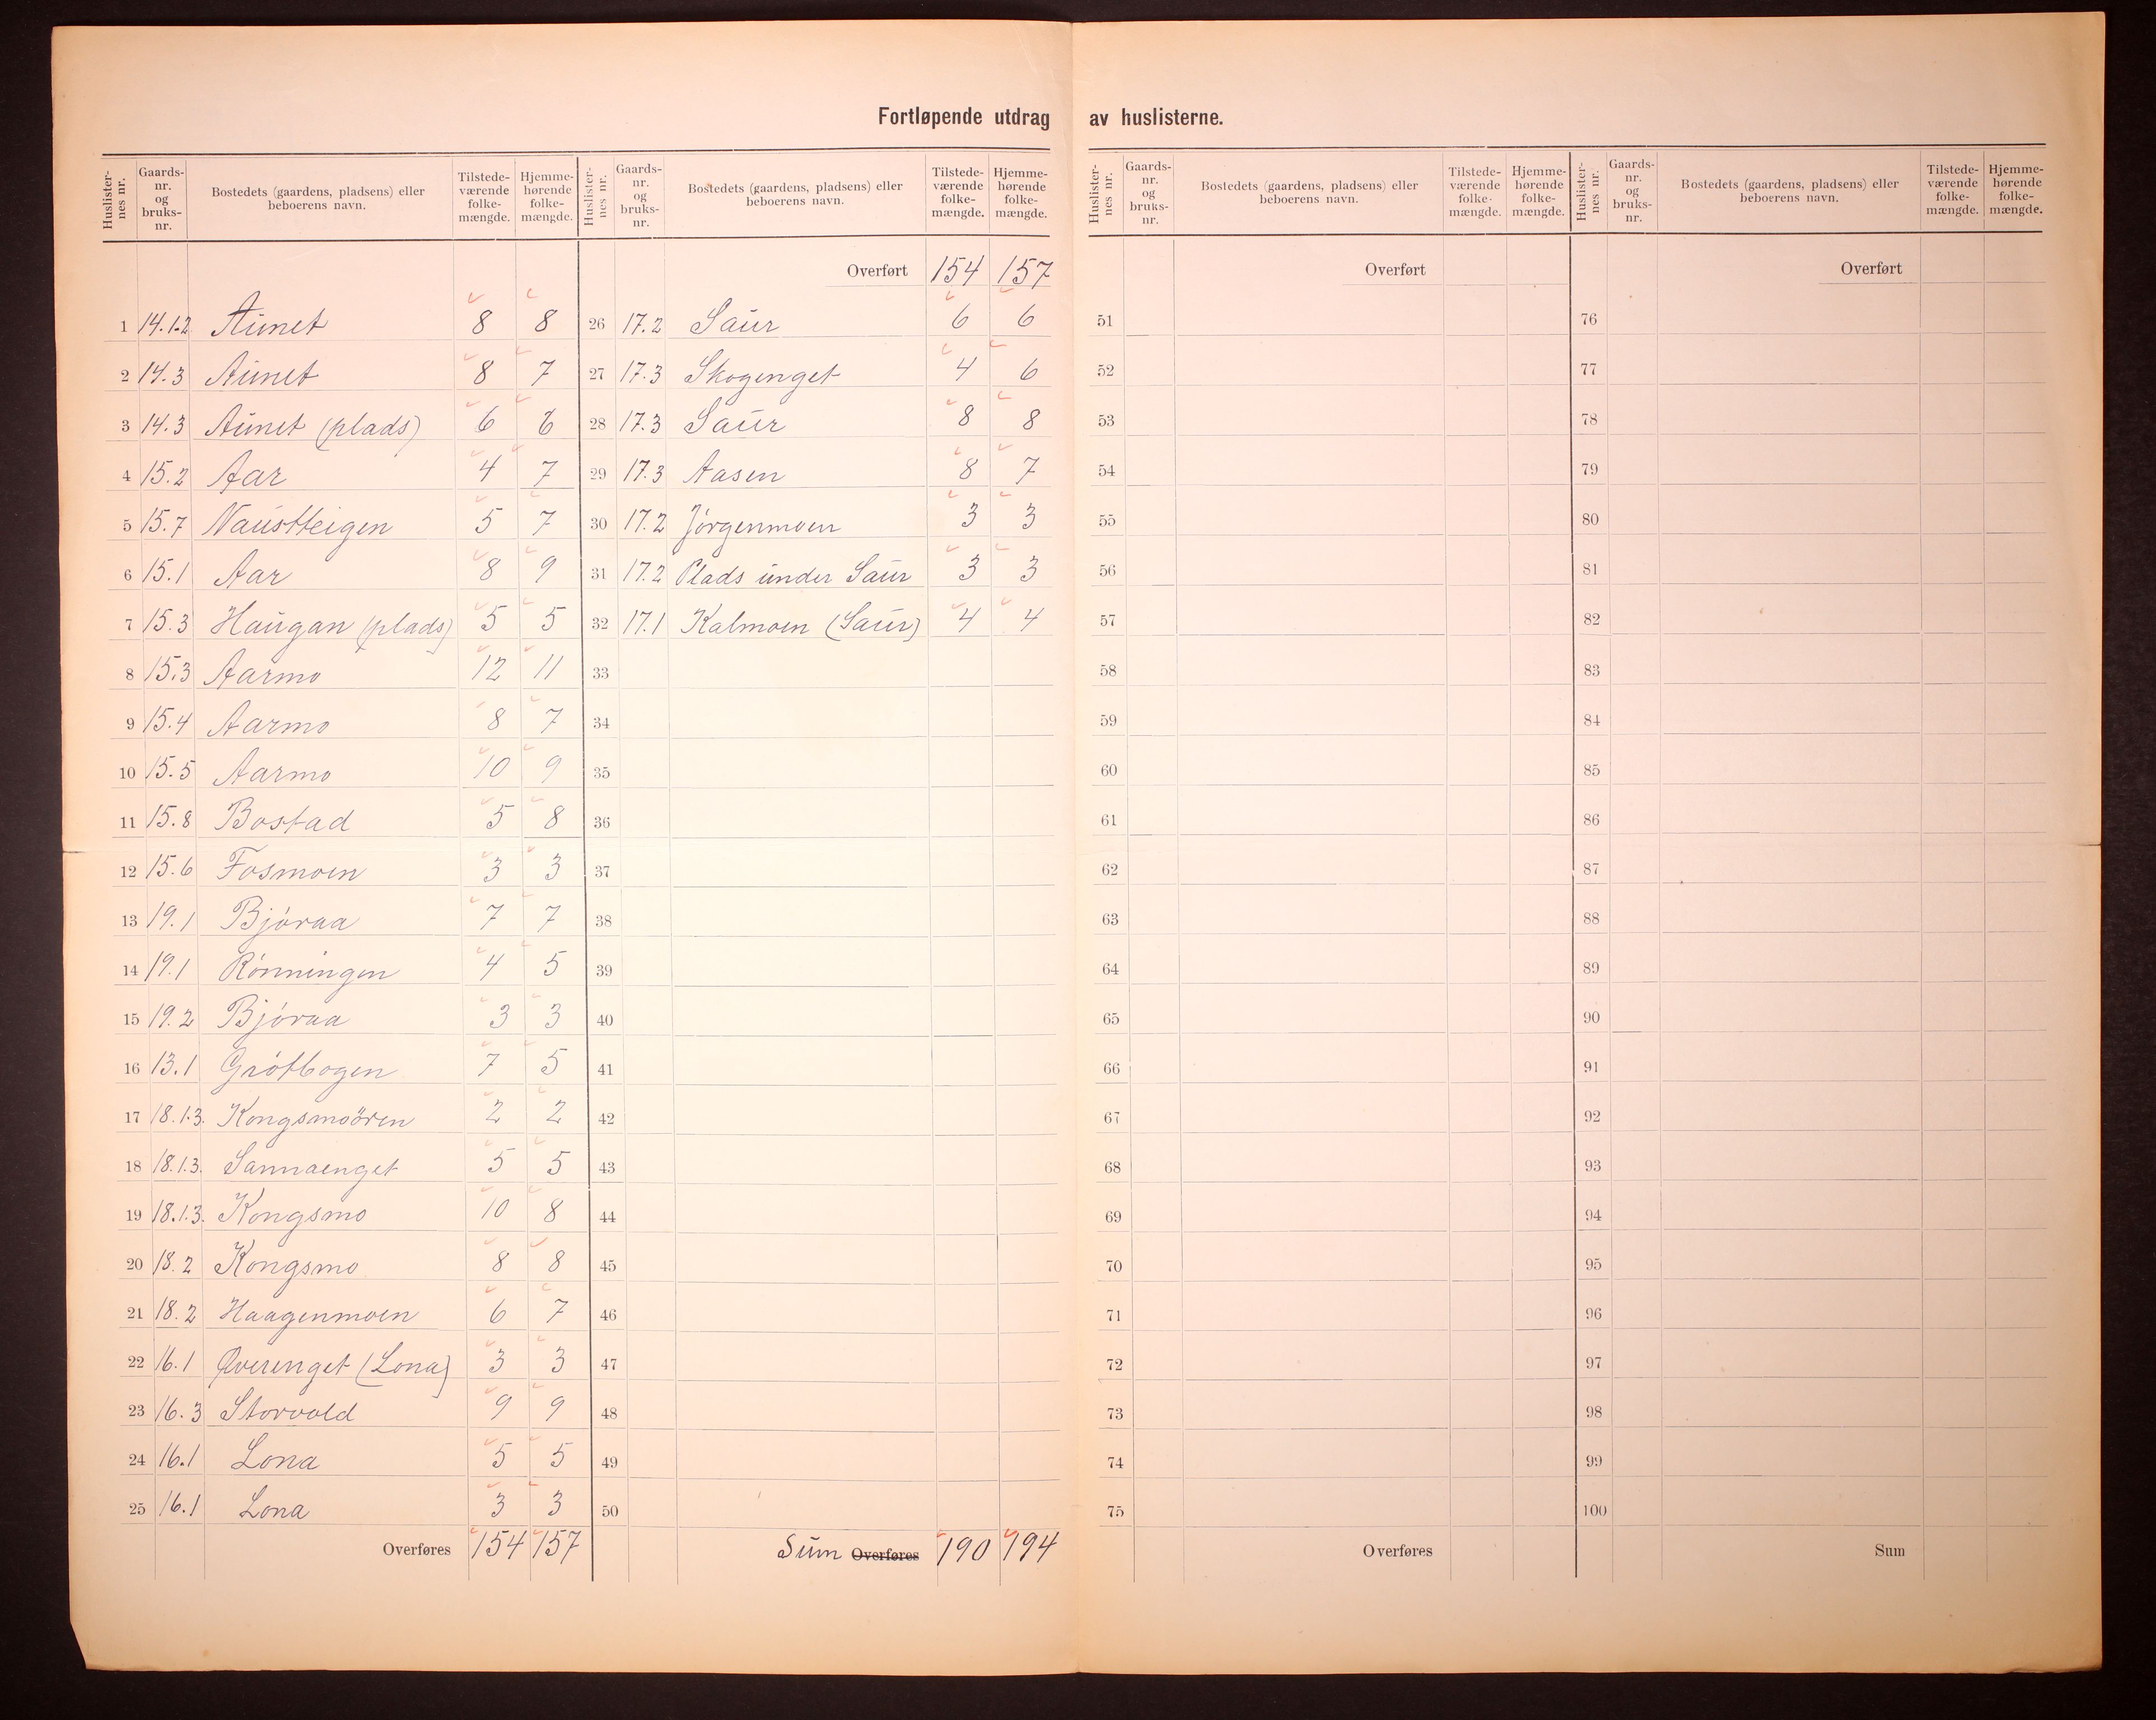 Fortløpende utdrag av huslisterne.
Huslister-nes nr. Gaards-nr. og bruks-nr. Bostedets (gaardens, pladsens) eller beboerens navn. Tilstede-værende folke-mængde. Hjemme-hørende folke-mængde.
1 14.1.2 Aunet 8 8
2 14.3 Aunet 8 7
3 14.3 Aunet (plads) 6 6
4 15.2 Aar 4 7
5 15.7 Naustteigen 5 7
6 15.1 Aar 8 9
7 15.3 Haugan (plads) 5 5
8 15.3 Aarmo 12 11
9 15.4 Aarmo 8 7
10 15.5 Aarmo 10 9
11 15.8 Bostad 5 8
12 15.6 Fosmoen 3 3
13 19.1 Bjøraa 7 7
14 19.1 Rønningen 4 5
15 19.2 Bjøraa 3 3
16 13.1 Grøtbogen 7 5
17 18.1.3. Kongsmoören 2 2
18 18.1.3. Sannaenget 5 5
19 18.1.3. Kongsmo 10 8
20 18.2 Kongsmo 8 8
21 18.2 Haagenmoen 6 7
22 16.1 Øverenget (Lona) 3 3
23 16.3 Storvold 9 9
24 16.1 Lona 5 5
25 16.1 Lona 3 3
Overføres 154 157
Huslister-nes nr. Gaards-nr. og bruks-nr. Bostedets (gaardens, pladsens) eller beboerens navn. Tilstede-værende folke-mængde. Hjemme-hørende folke-mængde.
Overført 154 157
26 17.2 Saur 6 6
27 17.3 Skogenget 4 6
28 17.3 Saur 8 8
29 17.3 Aasen 8 7
30 17.2 Jørgenmoen 3 3
31 17.2 Plads under Saur 3 3
32 17.1 Kalmoen (Saur) 4 4
33
34
35
36
37
38
39
40
41
42
43
44
45
46
47
48
49
50
Sum Overføres 190 194
Huslister-nes nr. Gaards-nr. og bruks-nr. Bostedets (gaardens, pladsens) eller beboerens navn. Tilstede-værende folke-mængde. Hjemme-hørende folke-mængde.
Overført
51
52
53
54
55
56
57
58
59
60
61
62
63
64
65
66
67
68
69
70
71
72
73
74
75
Overføres
Huslister-nes nr. Gaards-nr. og bruks-nr. Bostedets (gaardens, pladsens) eller beboerens navn. Tilstede-værende folke-mængde. Hjemme-hørende folke-mængde.
Overført
76
77
78
79
80
81
82
83
84
85
86
87
88
89
90
91
92
93
94
95
96
97
98
99
100
Sum